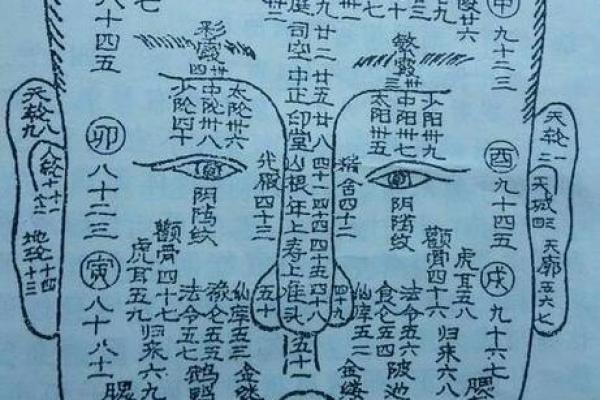 八十四五
七
申
九十二三
彩霞卅四
繁霞卅三
司空廿二
中正廿五
印堂廿八
山根四十一
年上四十四
寿上四十五
准头四十八
太阴卅六
中阴卅八
少阴四十
太阳卅五
中阳卅七
少阳卅九
天轮八九
人轮十十一十二
地轮十四十三
天轮一二
天城四三
天廓五六七
卯
八十二三
酉
九十四五
寅
八十八十一
戌
九十六七
阴骘纹
阴骘纹
四十三
精舍四十二
颧骨四十七
颧骨四十六
虎耳五九
虎耳五八
归来六九
归来六八
法令五七
法令五六
禄仓五五
食仑五四
仙库五三
仙库五二
五十
四十九
五十一
金缕
金缕
鹅鸭
陂池
腮
腮